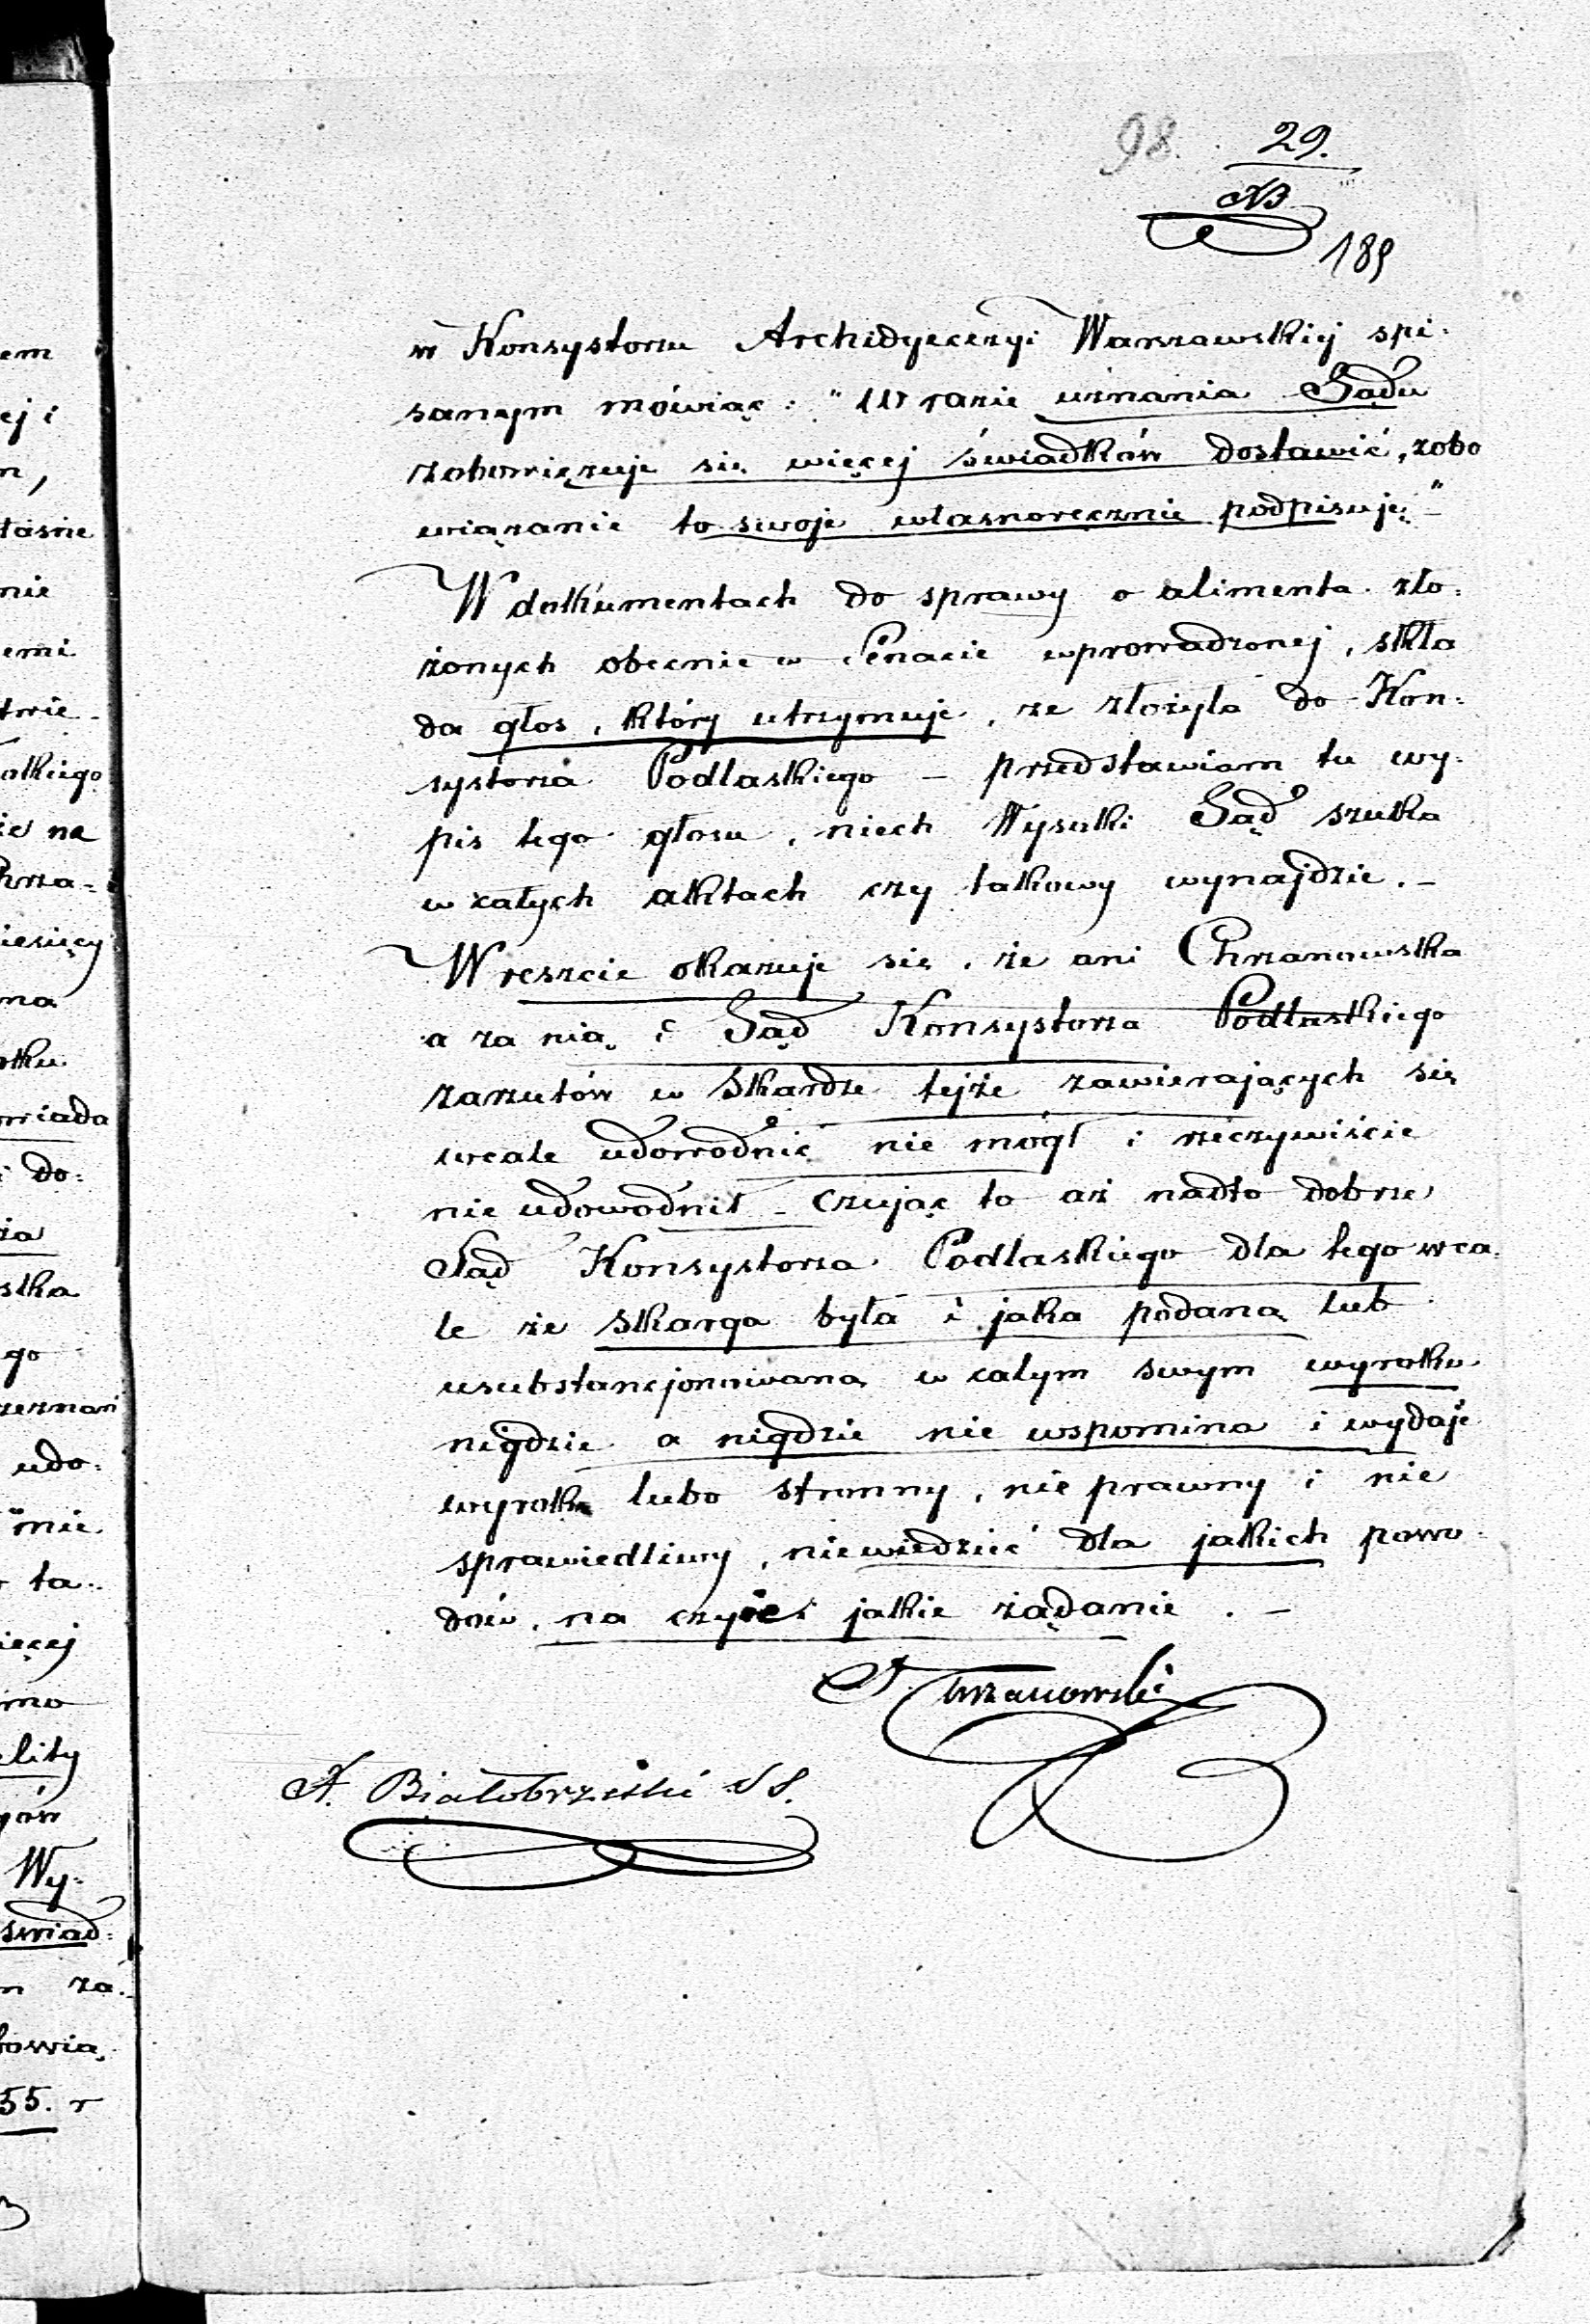 98. 29.
AB
189
w Konsystorzu Archidyecezyi Warszawskiej spi:
sanym mówiąc: "W razie uznania Sądu
zobowięzuje się więcej świadków dostawić, zobo
wiązanie to swoje własnoręcznie podpisuję" -
W dokumentach do sprawy o alimenta zło:
żonych obecnie w Senacie wprowadzonej, skła
da głos, który utrzymuje, że złożyła do Kon:
systorza Podlaskiego - przedstawiam tu wy:
pis tego głosu, niech Wysoki Sąd szuka
w całych aktach czy takowy wynajdzie. -
Wreszcie okazuje się, że ani Chrzanowska
a za nią i Sąd Konsystorza Podlaskiego
zarzutów w Skardze tejże zawierających się
wcale udowodnić nie mógł i rzeczywiście
nie udowodnił - Czując to aż nadto dobrze
Sąd Konsystorza Podlaskiego dla tego wca
le że Skarga była i jaka podaną lub
usubstancjonowaną w całym swym wyroku
nigdzie a nigdzie nie wspomina i wydaje
wyrok lubo stronny, nie prawny i nie
sprawiedliwy, niewiedzieć dla jakich powo
dów, na czyjeś jakie żądanie. -
Chrzanowski
A. Białobrzeski
em
ej i
n,
łasne
nie
emi
twie
alkiego
ie na
hrza-
iesięcy
na
otku
owiada
i do:
ia
ska
go
zeznań
udo:
mie
ta:
ięcej
mo
elity
gów
Wy-
świad:
n za:
bowią
55. r